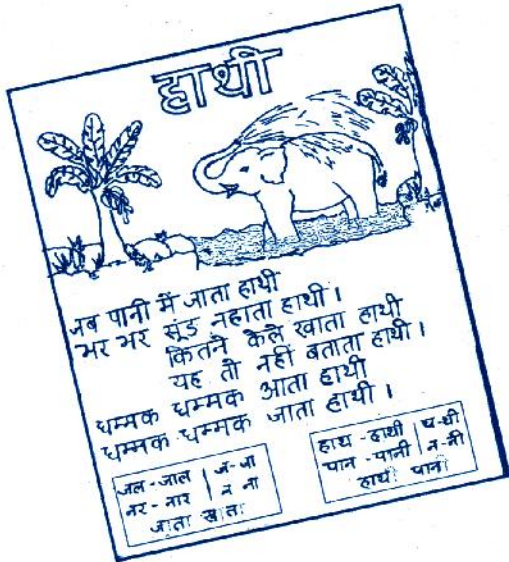 हाथी
जब पानी में जाता हाथी
भर भर सूंड नहाता हाथी ।
कितने केले खाता हाथी
यह तो नहीं बताता हाथी ।
धम्मक धम्मक आता हाथी
धम्मक धम्मक जाता हाथी ।
जल - जाल | ज - जा
नर - नार | न ना
जाता खाता
हाथ - हाथी | थ - थी
पान - पानी | न - नी
हाथी पानी